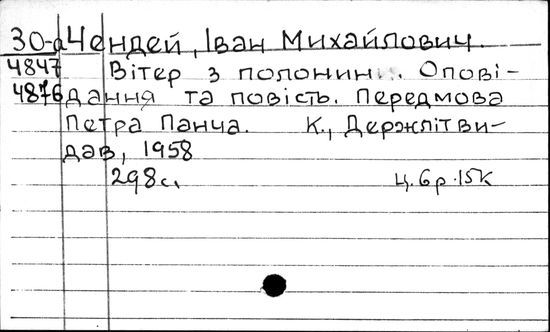 30-а Чендей, Іван Михайлович.
4847 Вітер з полонин. Опові-
4876 дання та повість. Передмова
Петра Панча. К., Держлітви-
дав, 1958
298с. Ц. 6р. 15к